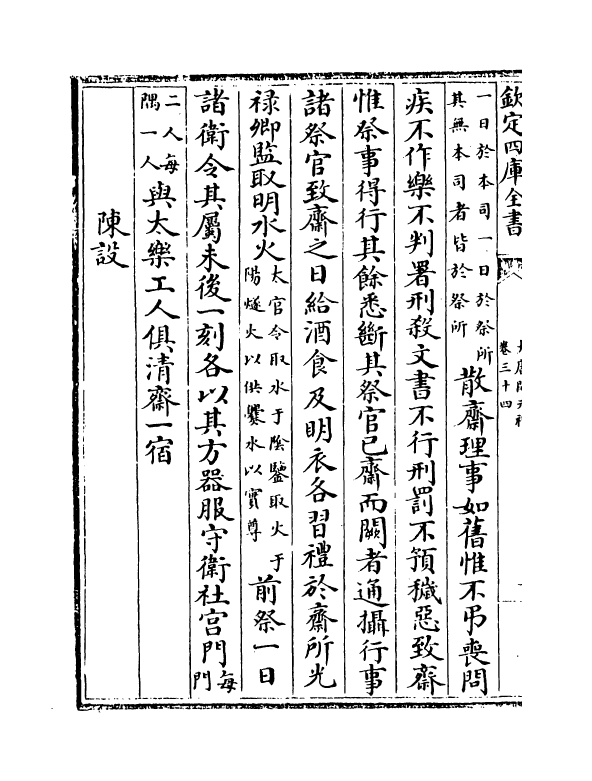 欽定四庫全書
大唐開元禮
卷三十四
一日於本司一日於祭所
其無本司者皆於祭所
散齋理事如舊惟不弔喪問
疾不作樂不判署刑殺文書不行刑罰不預穢惡致齋
惟祭事得行其餘悉斷其祭官已齋而闕者通攝行事
諸祭官致齋之日給酒食及明衣各習禮於齋所光
禄卿監取明水火
太官令取水于陰鑒取火于
陽燧火以供爨水以實尊
前祭一日
諸衛令其屬未後一刻各以其方器服守衛社宫門
每
門
二人每
隅一人
與太樂工人俱清齋一宿
陳設